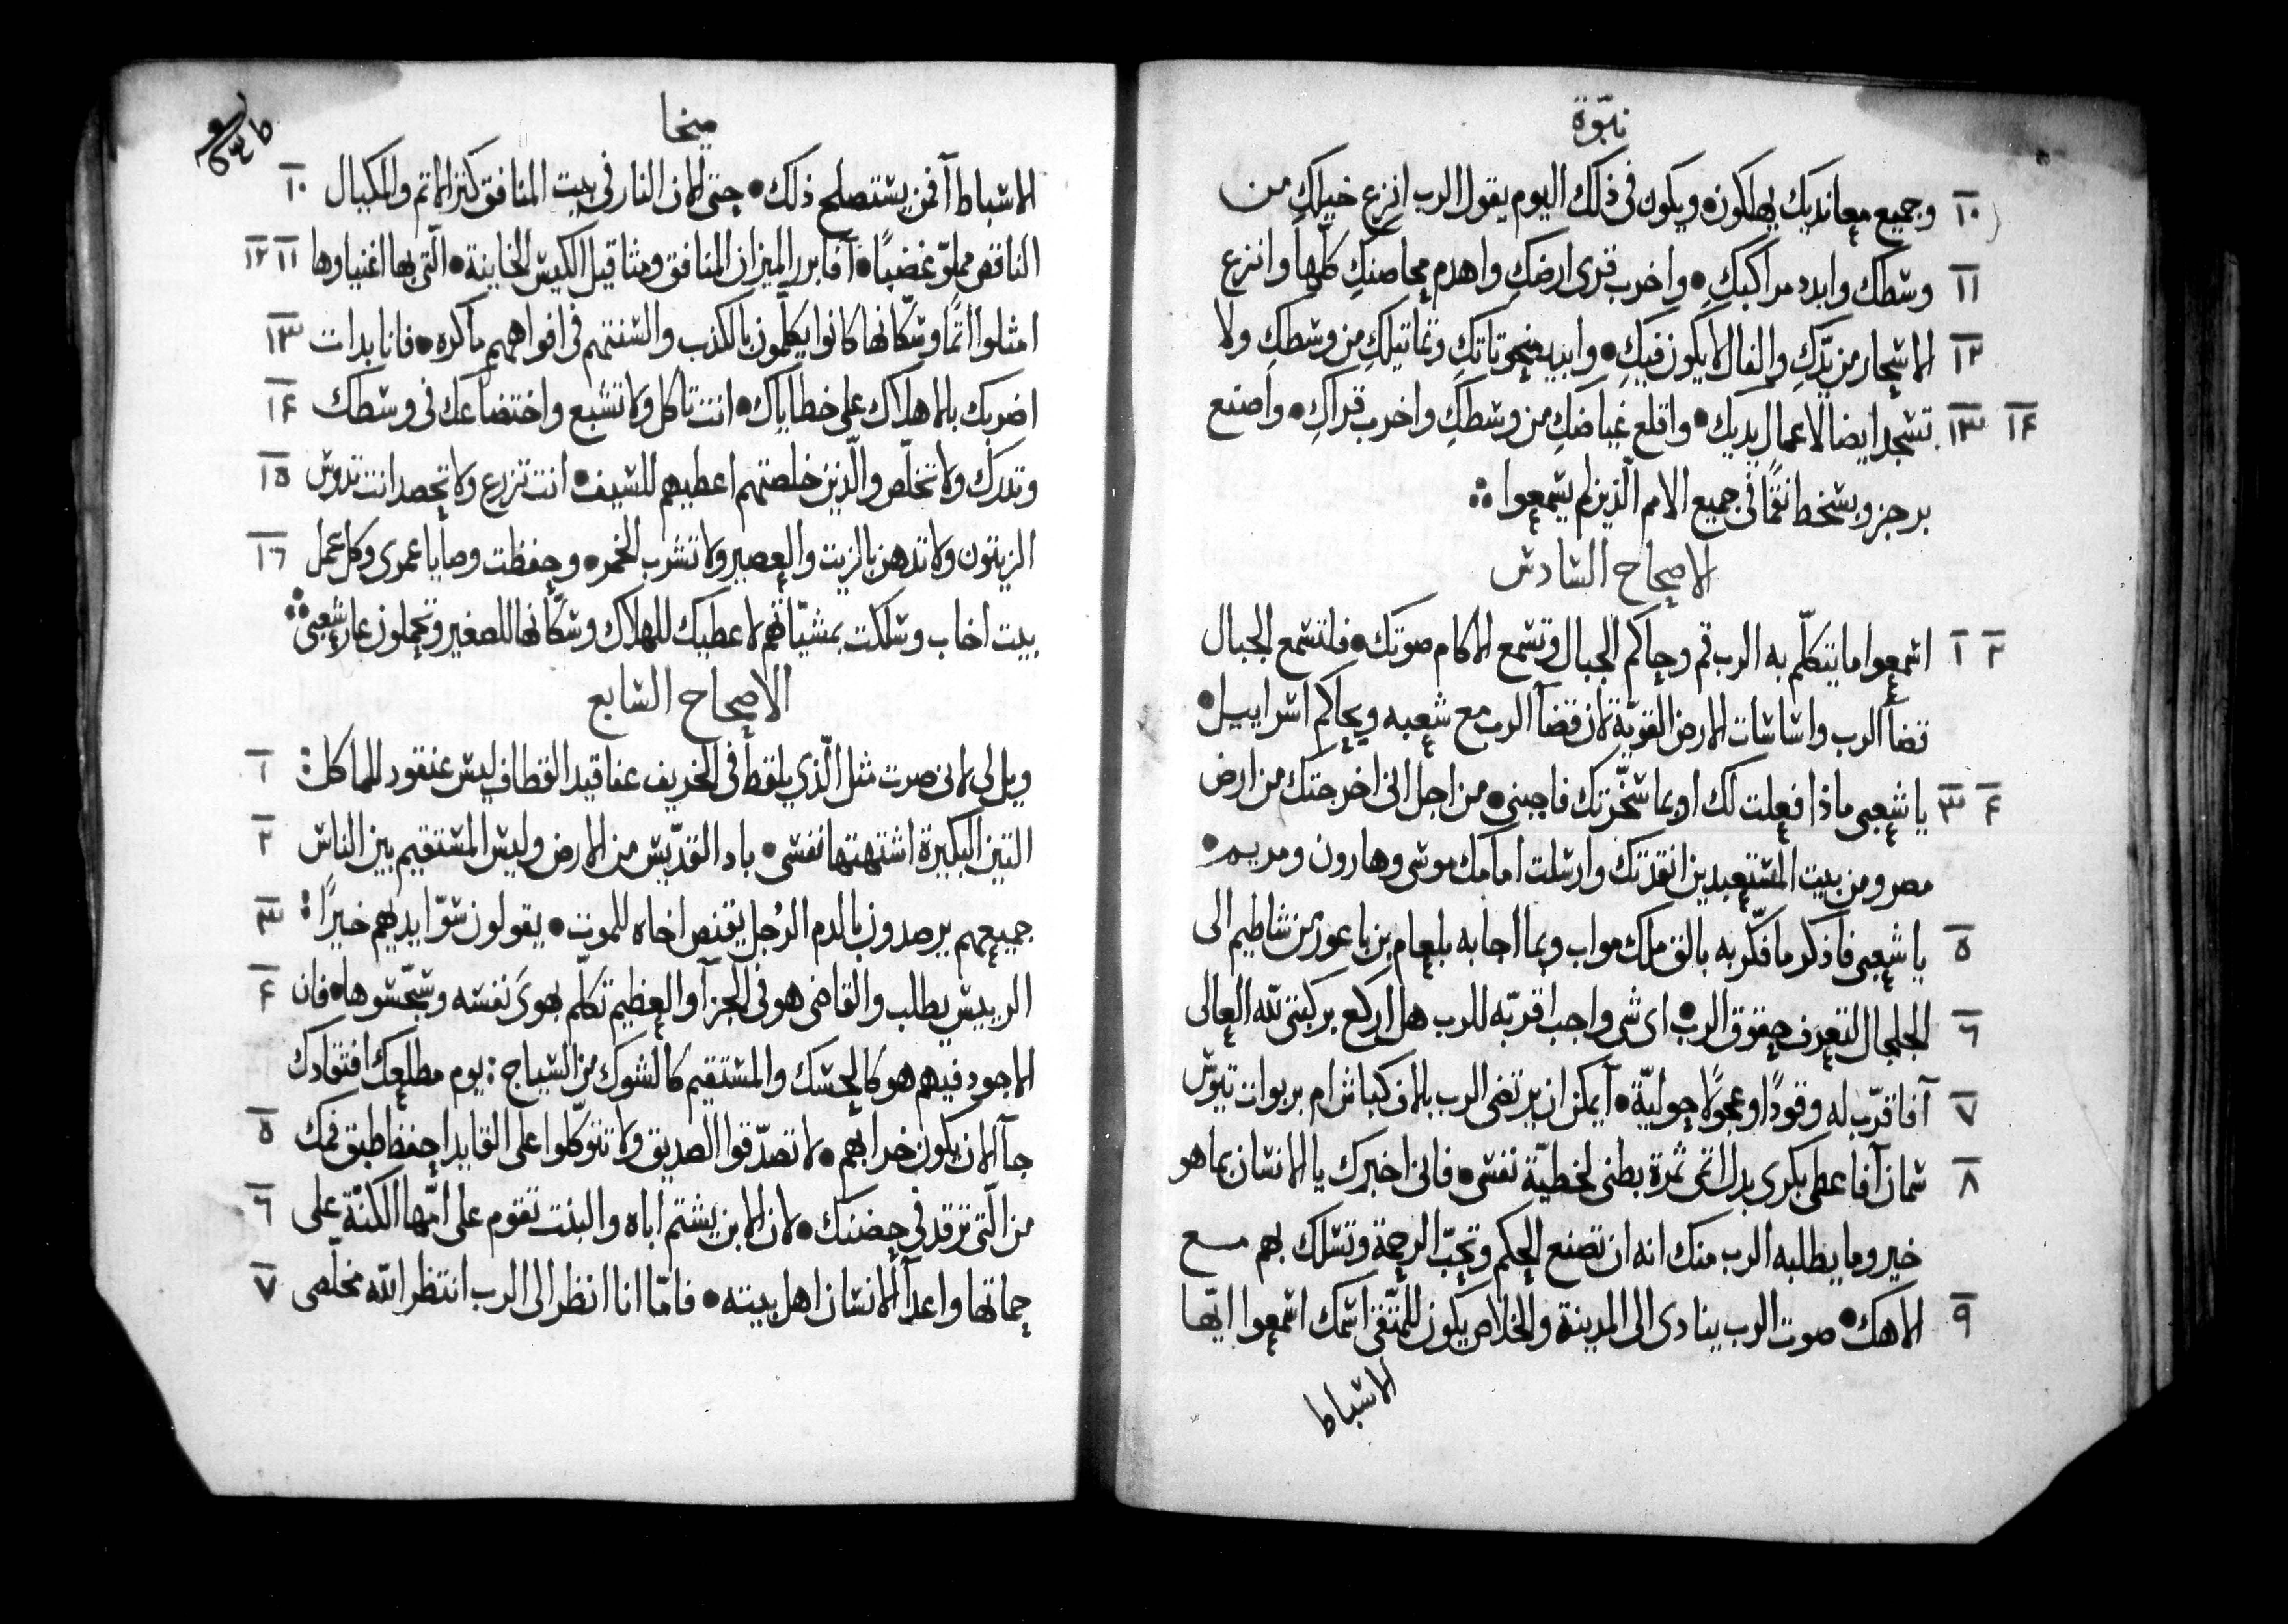 نبوّة
١٠ وجميع معانديك يهلكون • ويكون في ذلك اليوم يقول الرب انزع خيلكِ من
١١ وسطك وابدد مراكبكِ • واخرب قرى ارضكِ واهدم محاصنكِ كلها وانزع
١٢ الاسحار من يدّكِ والفال لا يكون فيكِ • وابيد منحوتاتكِ وتماثيلكِ من وسطكِ ولا
١٣ ١٤ تسجد ايضا لاعمال يديك • واقلع غياضكِ من وسطكِ واخرب قراكِ • واصنع
برجز وبسخط انتقمًا في جميع الامم الذين لم يسمعوا ∴
الاصحاح السادس
١ ٢ اسمعوا ما يتكلّم به الرب قم وحاكم الجبال وتسمع الاكام صوتك • فلتسمع الجبال
قضأ الرب واساسات الارض القويّة لان قضآ الرب مع شعبه ويحاكم اسراييل •
٣ ٤ يا شعبي ماذا فعلت لك او بما سخّرتك فاجبنى • من اجل انى اخرجتك من ارض
مصر ومن بيت المستعبدين انقذتك وارسلت امامك موسى وهارون ومريم •
٥ يا شعبي فاذكر ما فكّر به بالق ملك مواب وبما اجابه بلعام بن باعور من شاطيم الى
٦ الجلجال لتعرف حقوق الرب • اى شى واجب اقربّه للرب هل اركع بركبتى لله العالى
٧ آفاقرّب له وقودًا وعجولًا حوليّة • آيمكن ان يرتضى الرب بالاف كباش ام بربوات تيوس
٨ سمان آفاعطى بكرى بدل اثمى ثمرة بطنى لخطيّة نفسى • فانى اخبرك يا الانسان بما هو
خير وما يطلبه الرب منك انه ان تصنع الحكم وتحبّ الرحمة وتسلك بهم مع
٩ الاهك • صوت الرب ينادى الى المدينة والخلاص يكون للمتّقى اسمك اسمعوا ايّها
الاسباط
ميخا
الاسباط آفمن يستصلح ذلك • حتى الان النار في بيت المنافق كنز الاثم والمكيال ١٠
الناقص مملوّ غضبًا • آفابرر الميزان المنافق ومثاقيل الكيس الخاينة • الّتى بها اغنياوها ١١ ١٢
امثلوا اثمًا وسكّانها كانوا يكلّمون بالكذب والسنتهم في افواههم ماكره • فانا بدات ١٣
اضربك بالاهلاك على خطاياك • انت تاكل ولا تشبع واختضاعك في وسطك ١٤
وتدرك ولا تخلّص والّذين خلصتهم اعطيهم للسيف • انت تزرع ولا تحصد انت تدوس ١٥
الزيتون ولا تدهن بالزيت والعصير ولا تشرب الخمر • وحفظت وصايا عمرى وكل عمل ١٦
بيت اخاب وسلكت بمشيّاتهم لاعطيك للهلاك وسكّانها للصغير وتحملون عار شعبى ∴
الاصحاح السابع
ويل لى لانى صرت مثل الّذي يلقط في الخريف عناقيد القطاف ليس عنقود للماكل : ١
التين البكيرة اشتهتها نفسى • باد القدّيس من الارض وليس المستقيم بين الناس ٢
جميعهم يرصدون بالدم الرجل يقنص اخاه للموت • يقولون سوّ ايديهم خيرًا : ٣
الرييس يطلب والقاضى هو في الجزآ والعظيم تكلّم بهوىَ نفسه وسجّسوها • فان ٤
الاجود فيهم هو كالحسك والمستقيم كالشوك من السياج : يوم مطلعك افتقادك
جآ الان يكون خرابهم • لا تصدّقوا الصديق ولا تتوكّلوا على القايد احفظ طبق فمك ٥
من الّتى ترقد في حضنك • لان الابن يشتم اباه والبنت تقوم على امّها الكنّة على ٦
حماتها واعدآ الانسان اهل بيته • فامّا انا انظر الى الرب انتظر الله مخلّصى ٧